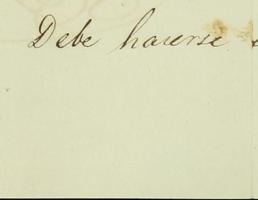 Debe hacerse